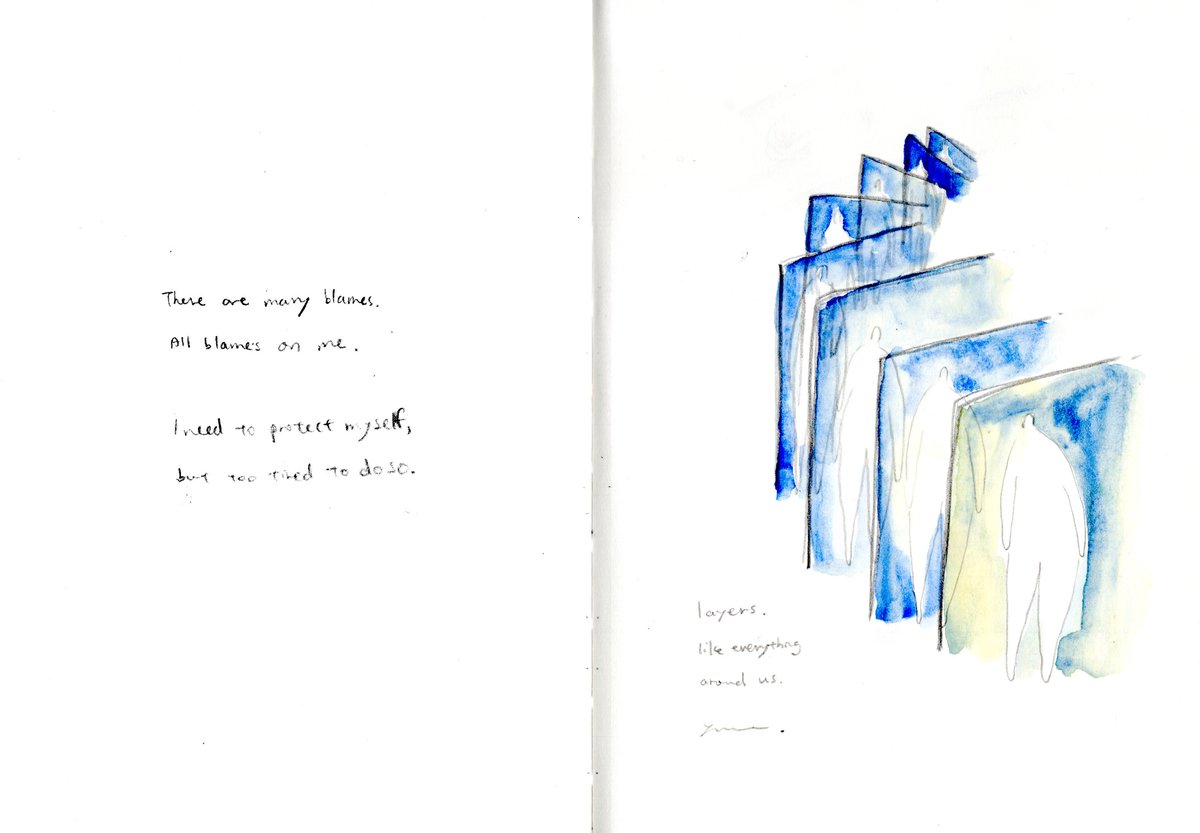 There are many blames.
All blames on me.
I need to protect myself,
but too tired to do so.
layers.
like everything
around us.